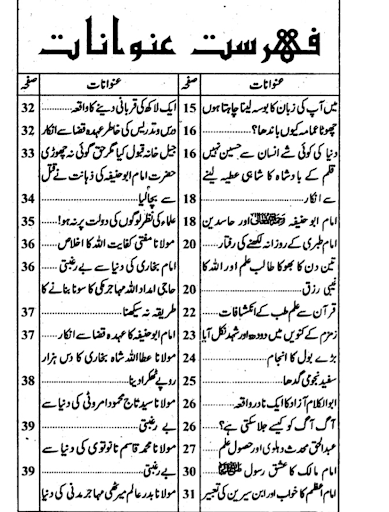 فہرست عنوانات
عنوانات صفحہ
میں آپ کی زبان کا بوسہ لینا چاہتا ہوں 15
چھوٹا عمامہ کیوں باندھا؟ 16
دنیا کی کوئی شے انسان سے حسین نہیں 16
قلم کے بادشاہ کا شاہی عطیہ لینے
سے انکار 18
امام ابو حنیفہ اور حاسدین 18
امام طبری کے روزانہ لکھنے کی رفتار 20
تین دن کا بھوکا طالب علم اور اللہ کا
غیبی رزق 20
قرآن سے علم طب کے انکشافات 22
زمزم کے کنویں میں دودھ اور شہد نکل آیا 23
بڑے بول کا انجام 24
سفید نجومی گدھا 25
ابوالکلام آزاد کا ایک نادر واقعہ 26
آگ آگ کو کیسے جلا سکتی ہے؟ 26
عبدالحق محدث دہلوی اور حصول علم 27
امام مالک کا عشق رسول ﷺ 30
امام اعظم کا خواب اور ابن سیرین کی تعبیر 31
عنوانات صفحہ
ایک لاکھ کی قربانی دینے کا واقعہ 32
درس و تدریس کی خاطر عہدہ قضا سے انکار 32
جیل خانہ قبول کیا مگر حق گوئی نہ چھوڑی 33
حضرت امام ابوحنیفہ کی ذہانت نے قتل
سے بچا لیا 34
علماء کی نظر لوگوں کی دولت پر نہ ہو! 35
مولانا مفتی کفایت اللہ کا اخلاص 36
امام بخاری کی دنیا سے بے رغبتی 36
حاجی امداد اللہ مہاجر مکی کا سونا بنانے کا
طریقہ نہ سیکھنا 37
امام ابو حنیفہ کا عہدہ قضا سے انکار 37
مولانا عطا اللہ شاہ بخاری کا دس ہزار
روپے ٹھکرا دینا 38
مولانا سید تاج محمود امروٹی کی دنیا سے
بے رغبتی 39
مولانا محمد قاسم نانوتوی کی دنیا سے
بے رغبتی 39
مولانا بدر عالم میرٹھی مہاجر مدنی کی دنیا